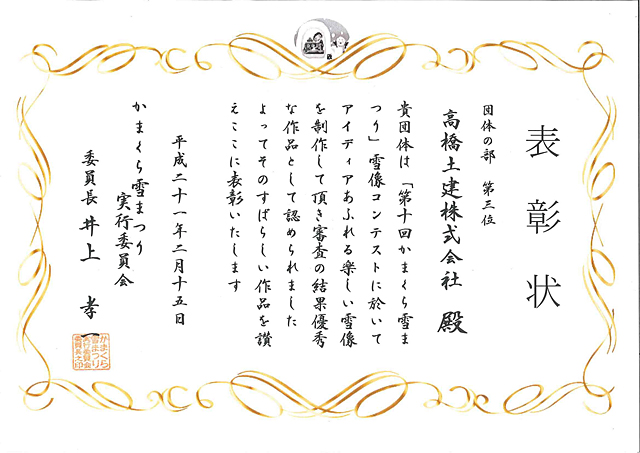 表彰状
団体の部 第三位
高橋土建株式会社 殿
貴団体は「第十回かまくら雪ま
つり」雪像コンテストに於いて
アイディアあふれる楽しい雪像
を制作して頂き審査の結果優秀
な作品として認められました
よってそのすばらしい作品を讃
えここに表彰いたします
平成二十一年二月十五日
かまくら雪まつり
実行委員会
委員長 井上 孝一
かまくら
雪まつり
実行委員会
委員長之印